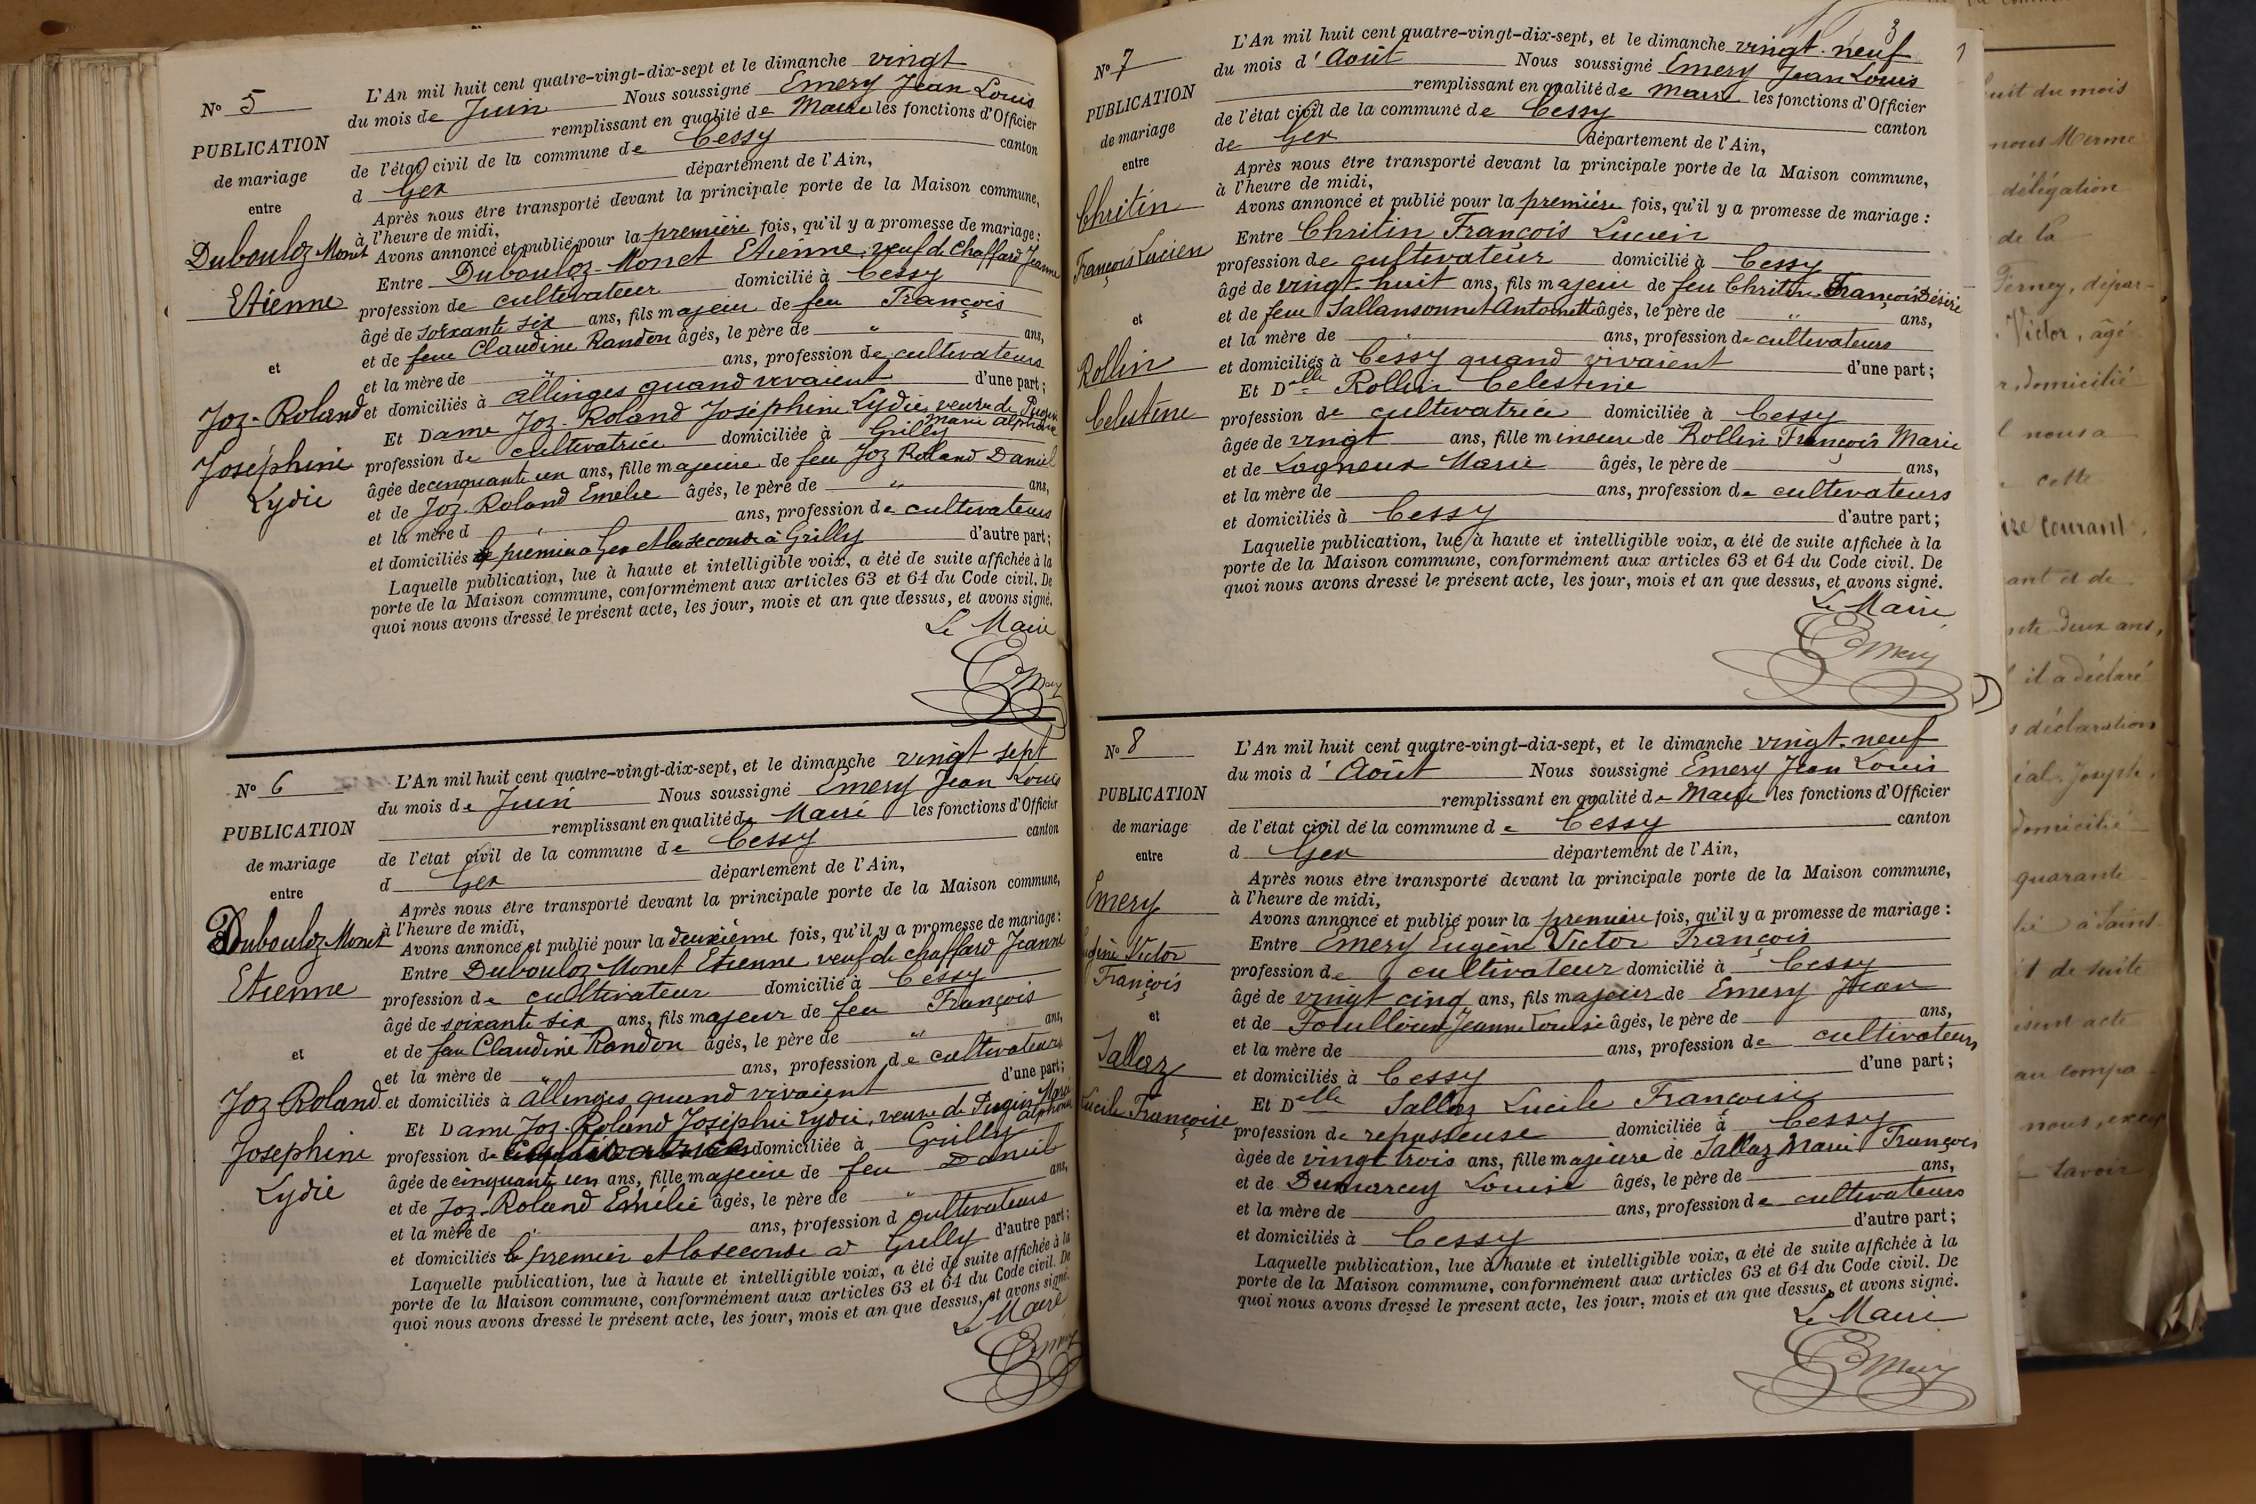 N° 5
PUBLICATION
de mariage
entre
Dubouloz Monet
Etienne
et
Joz-Roland
Joséphine
Lydie
L'An mil huit cent quatre-vingt-dix-sept et le dimanche vingt
du mois de Juin Nous soussigné Emery Jean Louis
remplissant en qualité de Maire les fonctions d'Officier
de l'état civil de la commune de Cessy canton
d Gex département de l'Ain,
Après nous être transporté devant la principale porte de la Maison commune,
à l'heure de midi,
Avons annoncé et publié pour la première fois, qu'il y a promesse de mariage :
Entre Dubouloz-Monet Etienne, veuf de Chaffard Jeanne
profession de cultivateur domicilié à Cessy
âgé de soixante six ans, fils majeur de feu François
et de feue Claudine Randon âgés, le père de " ans,
et la mère de " ans, profession de cultivateurs
et domiciliés à allinges quand vivaient d'une part ;
Et Dame Joz-Roland Joséphine Lydie veuve de Puguin
Marie alphonse
profession de cultivatrice domiciliée à Grilly
âgée de cinquante un ans, fille majeure de feu Joz Roland Daniel
et de Joz-Roland Emelie âgés, le père de " ans,
et la mère d ans, profession de cultivateurs
et domiciliés le premier à Gex et la seconde à Grilly d'autre part ;
Laquelle publication, lue à haute et intelligible voix, a été de suite affichée à la
porte de la Maison commune, conformément aux articles 63 et 64 du Code civil. De
quoi nous avons dressé le présent acte, les jour, mois et an que dessus, et avons signé.
Le Maire
Emery
N° 6
PUBLICATION
de mariage
entre
Dubouloz Monet
Etienne
et
Joz Roland
Josephine
Lydie
L'An mil huit cent quatre-vingt-dix-sept, et le dimanche vingt sept
du mois de Juin Nous soussigné Emery Jean Louis
remplissant en qualité de Maire les fonctions d'Officier
de l'état civil de la commune de Cessy canton
d Gex département de l'Ain,
Après nous être transporté devant la principale porte de la Maison commune,
à l'heure de midi,
Avons annoncé et publié pour la deuxième fois, qu'il y a promesse de mariage :
Entre Dubouloz-Monet Etienne veuf de chaffard Jeanne
profession de cultivateur domicilié à Cessy
âgé de soixante six ans, fils majeur de feu François
et de feu Claudine Randon âgés, le père de " ans,
et la mère de " ans, profession de cultivateurs
et domiciliés à allinges quand vivaient d'une part ;
Et Dame Joz-Roland Joséphie Lydie, veuve de Puguin Marie
alphonse
profession de cultivatrice domiciliée à Grilly
âgée de cinquante un ans, fille majeure de feu Daniel
et de Joz-Roland Emélie âgés, le père de " ans,
et la mère de " ans, profession d cultivateurs
et domiciliés le premier et la seconde à Grilly d'autre part ;
Laquelle publication, lue à haute et intelligible voix, a été de suite affichée à la
porte de la Maison commune, conformément aux articles 63 et 64 du Code civil. De
quoi nous avons dressé le présent acte, les jour, mois et an que dessus, et avons signé.
Le Maire
Emery
3
N° 7
PUBLICATION
de mariage
entre
Chritin
François Lucien
et
Rollin
Celestine
L'An mil huit cent quatre-vingt-dix-sept, et le dimanche vingt-neuf
du mois d'Août Nous soussigné Emery Jean Louis
remplissant en qualité de maire les fonctions d'Officier
de l'état civil de la commune de Cessy canton
de Gex département de l'Ain,
Après nous être transporté devant la principale porte de la Maison commune,
à l'heure de midi,
Avons annoncé et publié pour la première fois, qu'il y a promesse de mariage :
Entre Chritin François Lucien
profession de cultivateur domicilié à Cessy
âgé de vingt-huit ans, fils majeur de feu Chritin François Désiré
et de feue Sallansonnet Antoinette âgés, le père de " ans,
et la mère de ans, profession de cultivateurs
et domiciliés à Cessy quand vivaient d'une part ;
Et Delle Rollin Celestine
profession de cultivatrice domiciliée à Cessy
âgée de vingt ans, fille mineure de Rollin François Marie
et de Lagneux Marie âgés, le père de ans,
et la mère de ans, profession de cultivateurs
et domiciliés à Cessy d'autre part ;
Laquelle publication, lue à haute et intelligible voix, a été de suite affichée à la
porte de la Maison commune, conformément aux articles 63 et 64 du Code civil. De
quoi nous avons dressé le présent acte, les jour, mois et an que dessus, et avons signé.
Le Maire
Emery
N° 8
PUBLICATION
de mariage
entre
Emery
Eugène Victor
François
et
Sallaz
Lucile Françoise
L'An mil huit cent quatre-vingt-dix-sept, et le dimanche vingt-neuf
du mois d'Août Nous soussigné Emery Jean Louis
remplissant en qualité de Maire les fonctions d'Officier
de l'état civil de la commune de Cessy canton
d Gex département de l'Ain,
Après nous être transporté devant la principale porte de la Maison commune,
à l'heure de midi,
Avons annoncé et publié pour la première fois, qu'il y a promesse de mariage :
Entre Emery Eugène Victor François
profession de cultivateur domicilié à Cessy
âgé de vingt cinq ans, fils majeur de Emery Jean
et de Jeanne Louise âgés, le père de ans,
et la mère de ans, profession de cultivateurs
et domiciliés à Cessy d'une part ;
Et Delle Sallaz Lucile Françoise
profession de repasseuse domiciliée à Cessy
âgée de vingt trois ans, fille majeure de Sallaz Marie François
et de Dumarcey Louise âgés, le père de ans,
et la mère de ans, profession de cultivateurs
et domiciliés à Cessy d'autre part ;
Laquelle publication, lue à haute et intelligible voix, a été de suite affichée à la
porte de la Maison commune, conformément aux articles 63 et 64 du Code civil. De
quoi nous avons dressé le présent acte, les jour, mois et an que dessus, et avons signé.
Le Maire
Emery
du mois
nous Merme
délégation
de la
Ferney, dépar-
Victor, âgé
domicilié
nous a
cette
courant,
ant et de
deux ans,
il a déclaré
déclaration
Joseph,
domicilié
quarante
à Saint
de suite
acte
au compa
nous,
savoir